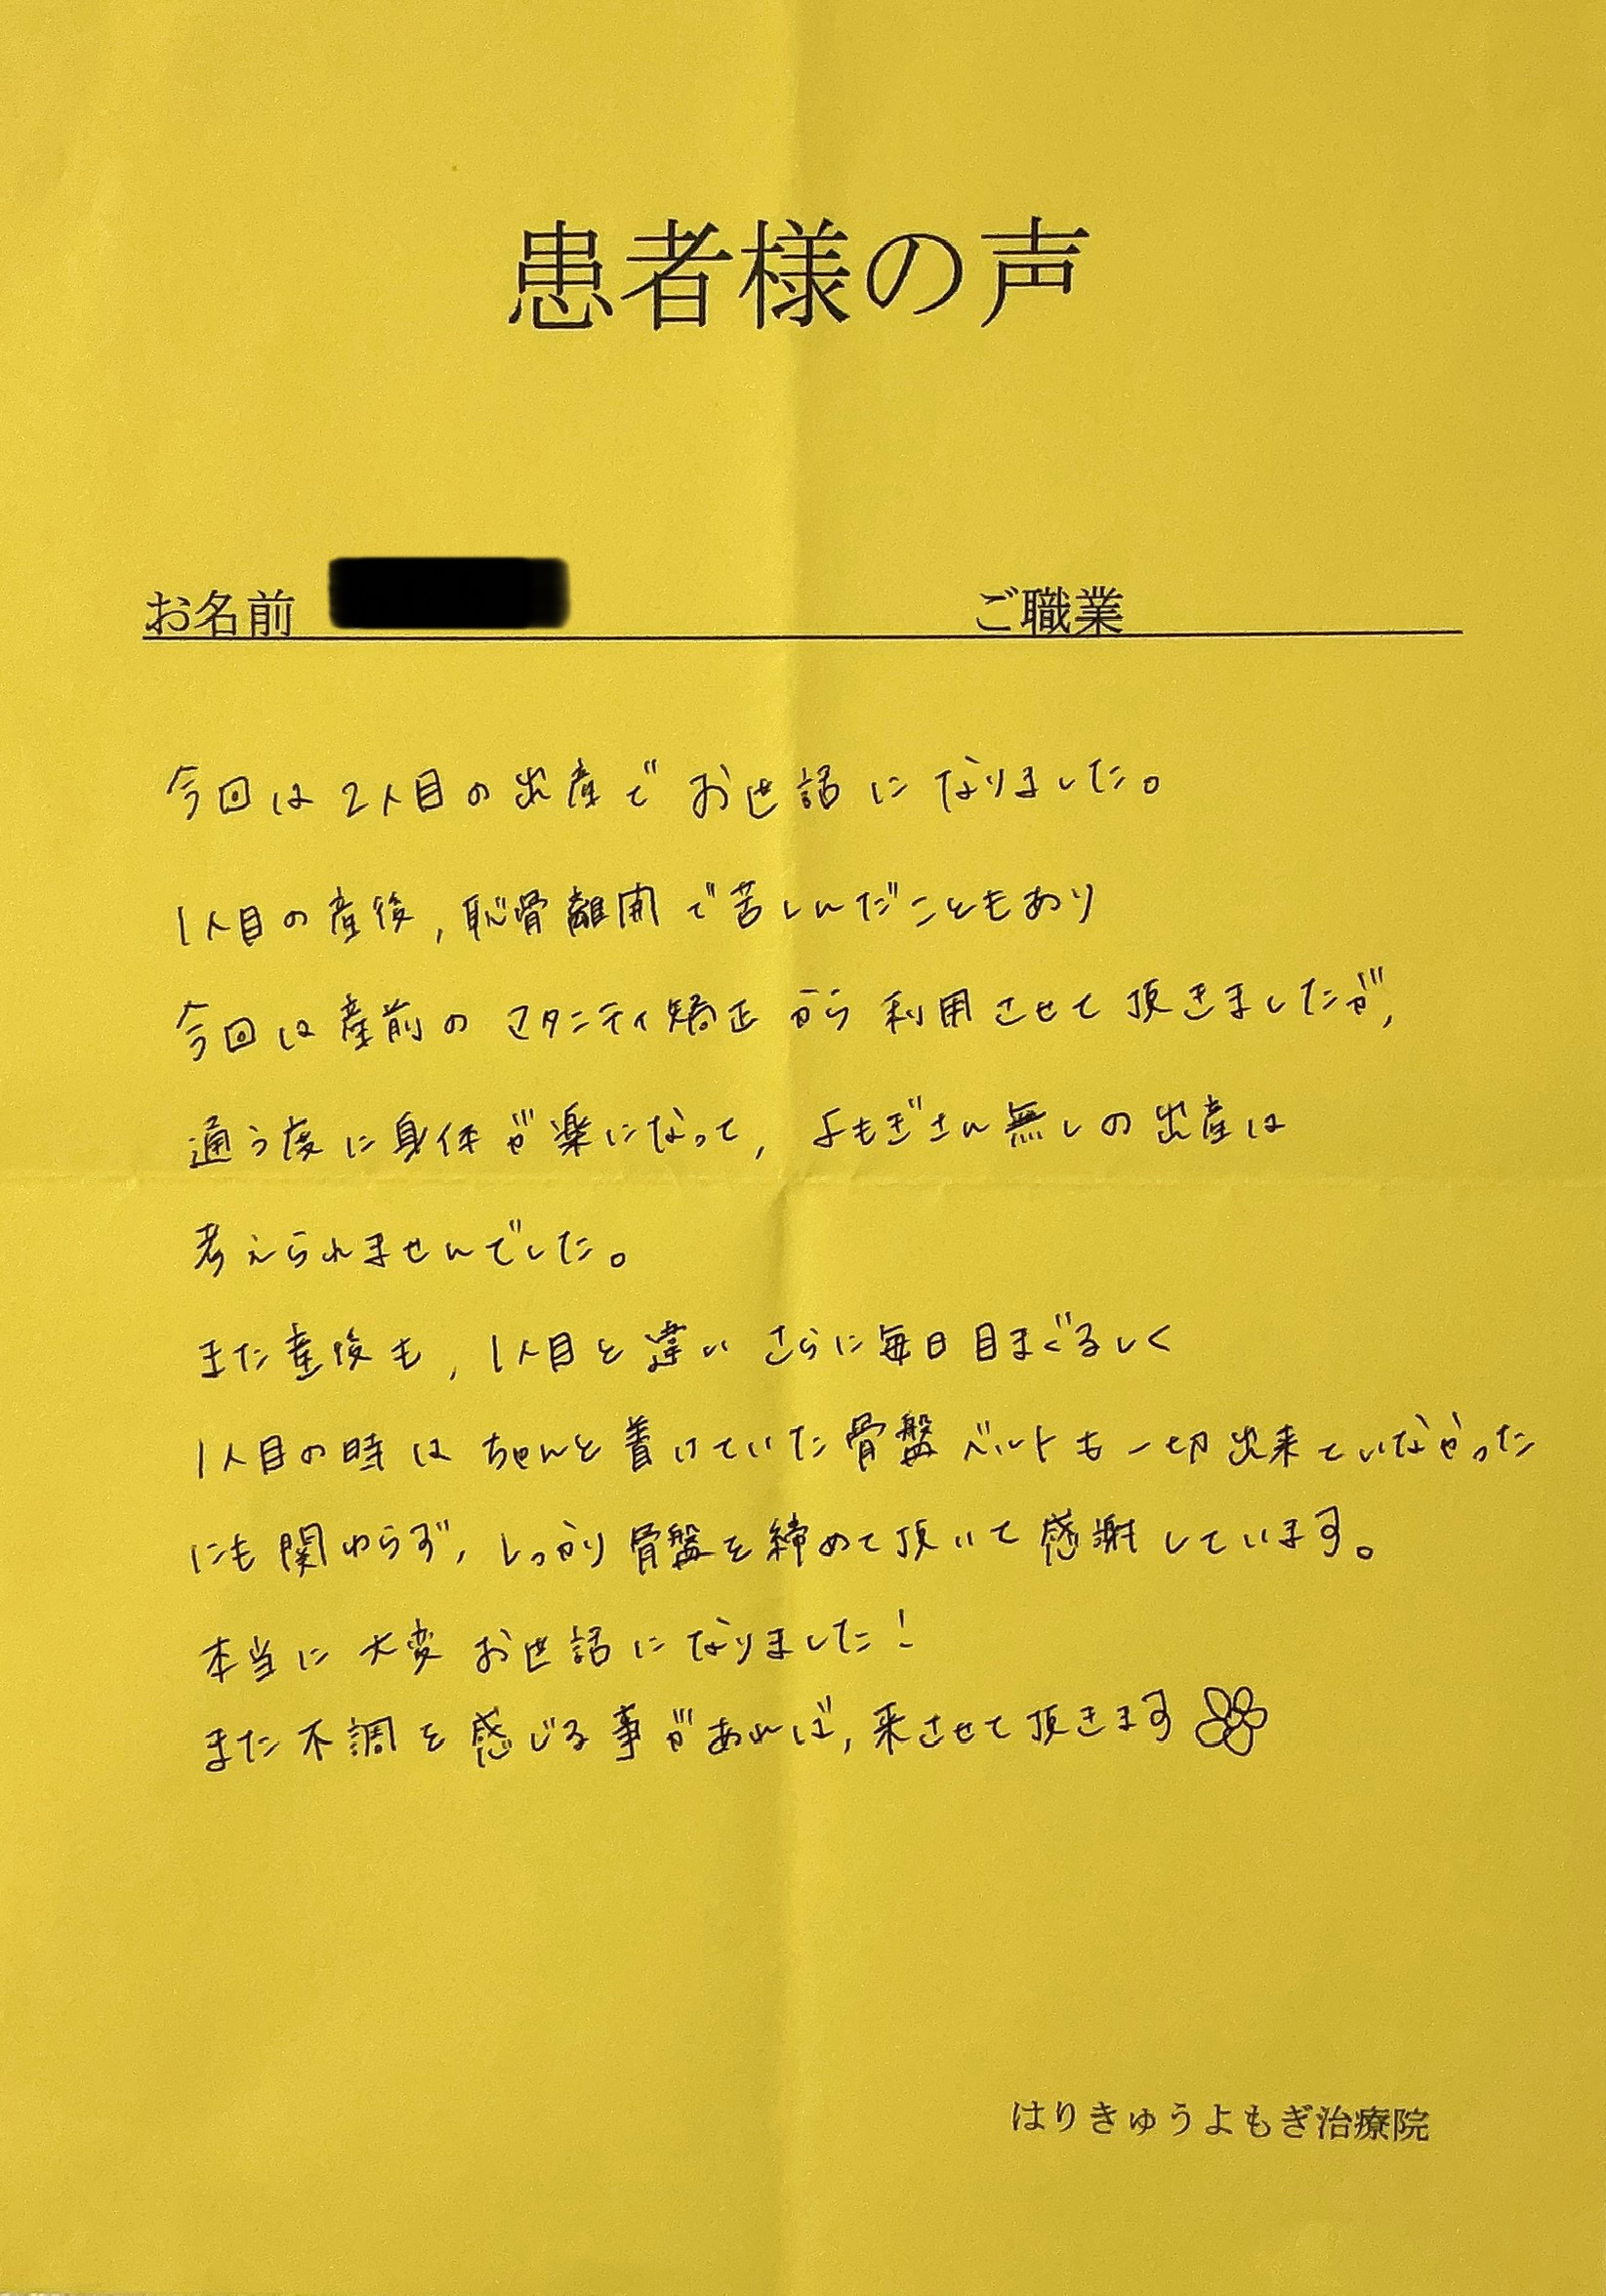 患者様の声
お名前 ご職業
今回は2人目の出産でお世話になりました。
1人目の産後,恥骨離開で苦しんだこともあり
今回は産前のマタニティ矯正から利用させて頂きましたが,
通う度に身体が楽になって,よもぎさん無しの出産は
考えられませんでした。
また産後も,1人目と違いさらに毎日目まぐるしく
1人目の時はちゃんと着けていた骨盤ベルトも一切出来ていなかった
にも関わらず,しっかり骨盤を締めて頂いて感謝しています。
本当に大変お世話になりました!
また不調を感じる事があれば,来させて頂きます
はりきゅうよもぎ治療院